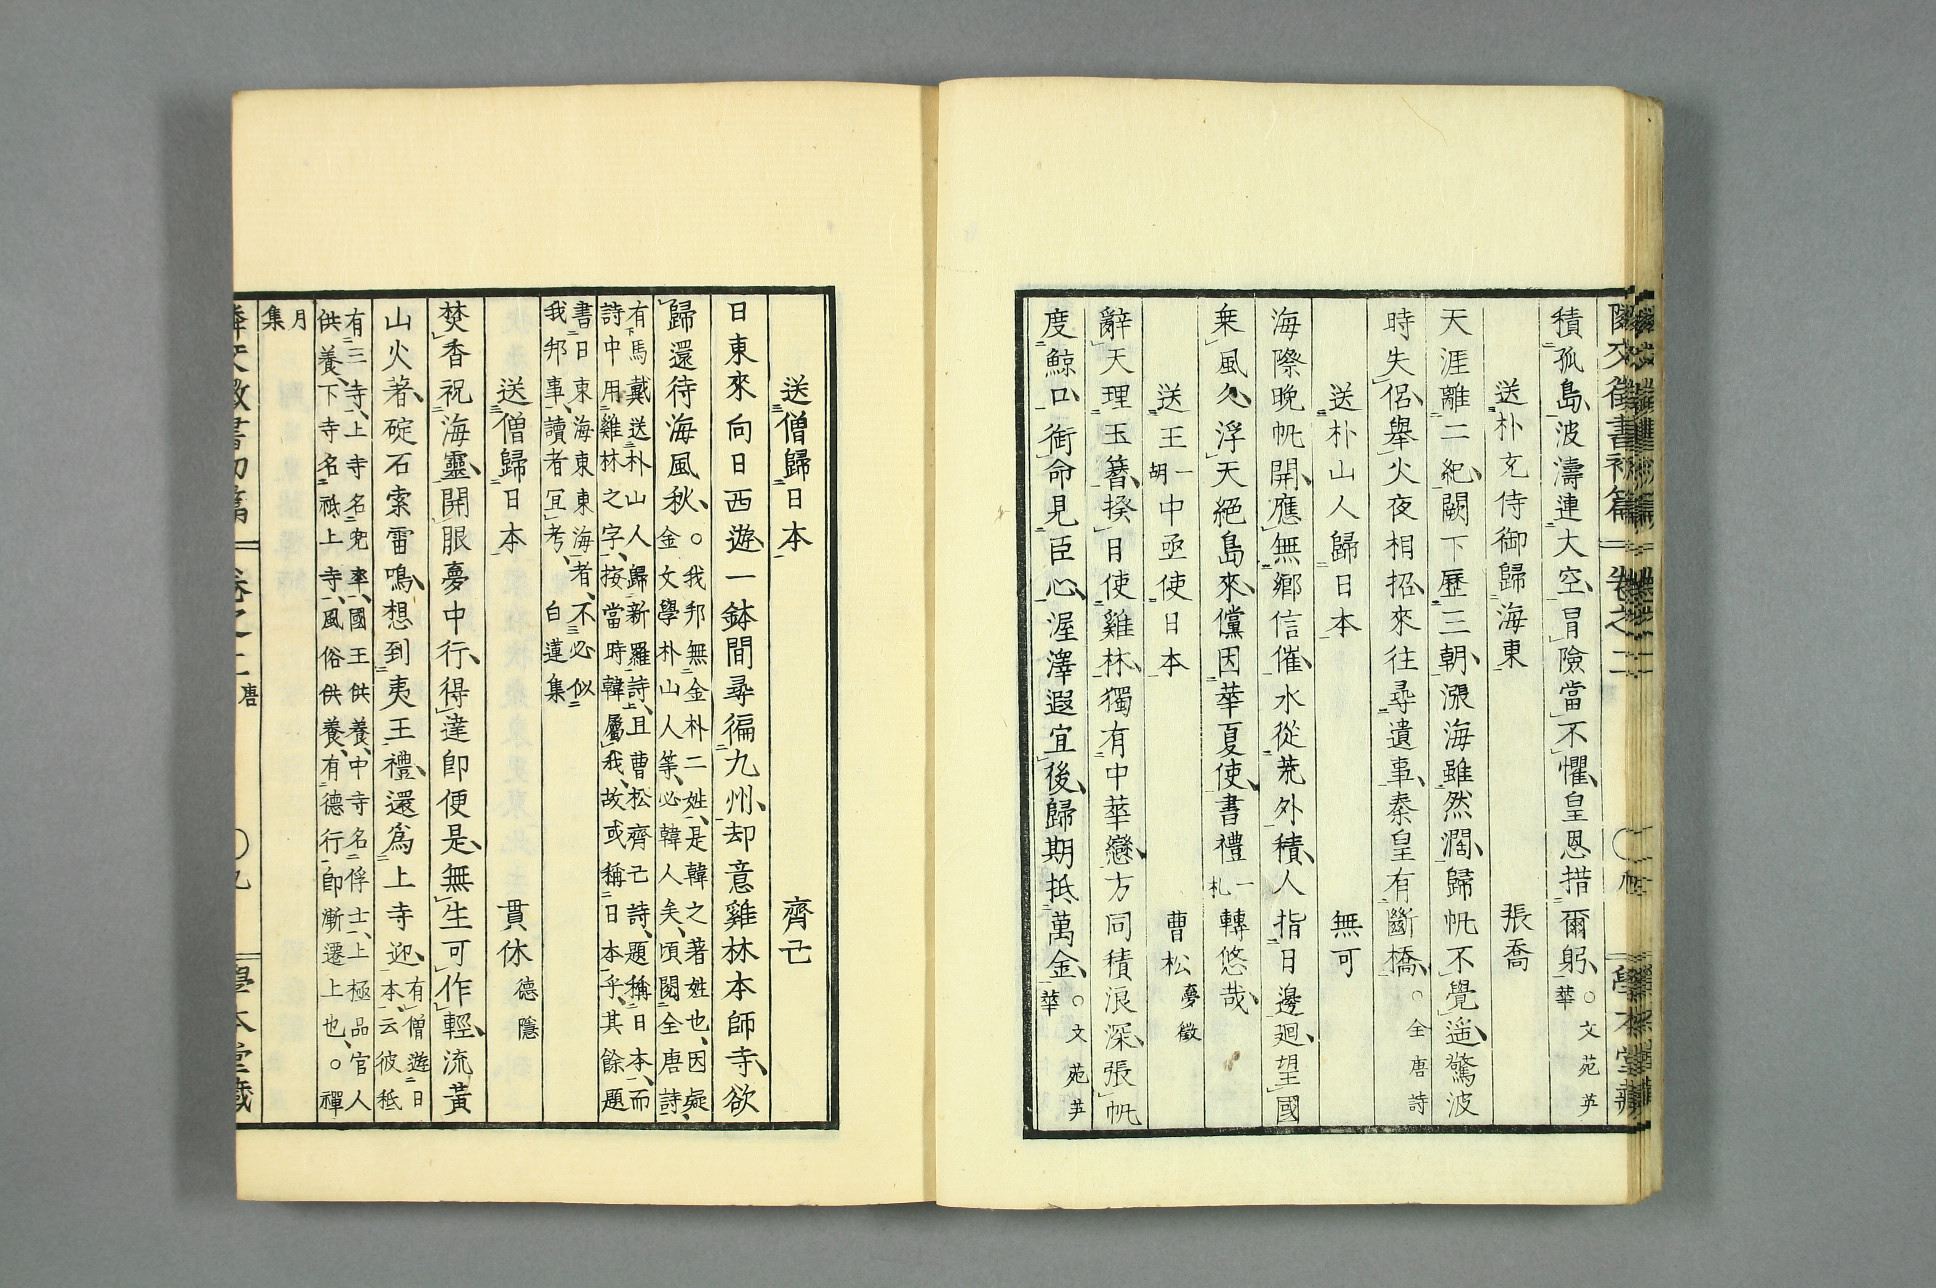 積孤島波濤連大空冒險當不懼皇恩措爾躬○文苑英華
送朴充侍御歸海東 張喬
天涯離二紀闕下歷三朝漲海雖然濶歸帆不覺遥驚波
時失侶舉火夜相招來往尋遺事秦皇有斷橋○全唐詩
送朴山人歸日本 無可
海際晚帆開應無鄉信催水從荒外積人指日邊廻望國
乗風久浮天絕島來儻因華夏使書禮一札轉悠哉
送王一胡中亟使日本 曹松夢徵
辭天理玉簪揆日使雞林獨有中華戀方同積浪深張帆
度鯨口銜命見臣心渥澤遐宜後歸期抵萬金○文苑英華
送僧歸日本 齊己
日東來向日西遊一鉢閒尋徧九州却意雞林本師寺欲
歸還待海風秋○我邦無金朴二姓是韓之著姓也因疑
金文學朴山人等必韓人矣頃閱全唐詩
有馬戴送朴山人歸新羅詩且曹松齊己詩題稱日本而
詩中用雞林之字按當時韓屬我故或稱日本乎其餘題
書曰東海東東海者不必似
我邦事讀者宜考 白蓮集
送僧歸日本 貫休德隱
焚香祝海靈開眼夢中行得達即便是無生可作輕流黃
山火著碇石索雷鳴想到夷王禮還爲上寺迎有僧遊日
本云彼秪
有三寺上寺名兜率國王供養中寺名俘士上極品官人
供養下寺名祇上寺風俗供養有德行即漸遷上也○禪
月
集
隣交徵書初篇 卷之二 唐 ○九 學本堂藏